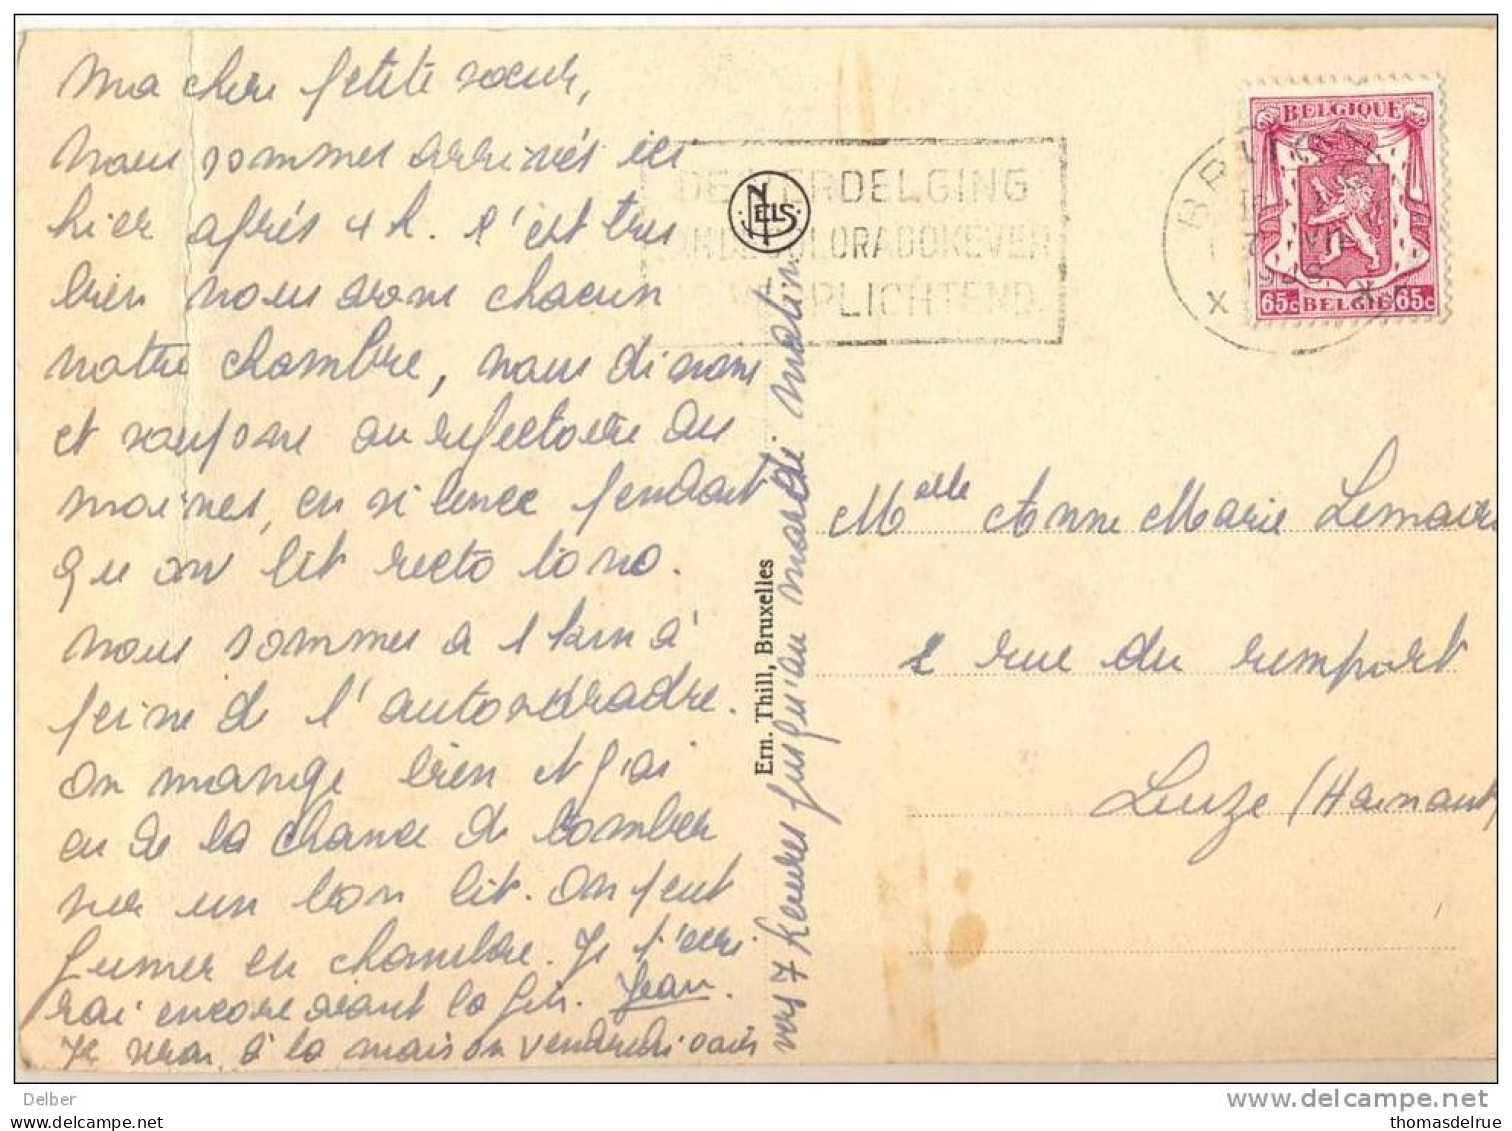 Ma chère petite sœur,
nous sommes arrivés ici
hier après 4 h. c'est très
bien nous avons chacun
notre chambre, nous dinons
et soupons au réfectoire des
moines, en silence pendant
qu'on lit recto tono.
nous sommes à 1 km à
peine de l'autostrade.
On mange bien et j'ai
eu de la chance de tomber
sur un bon lit. On peut
fumer en chambre. Je t'écri
rai encore avant la fin. Jean.
Je serai à la maison vendredi soir
vers 7 heures jusqu'au mardi matin
NELS
Ern. Thill, Bruxelles
DE VERDELGING
COLORADOKEVER
VERPLICHTEND.
BELGIQUE
65c BELGIE 65c
Melle Anne Marie Lemaire
2 rue du rempart
Leuze (Hainaut
Delber
www.delcampe.net
My-postcards.com
thomasdelrue